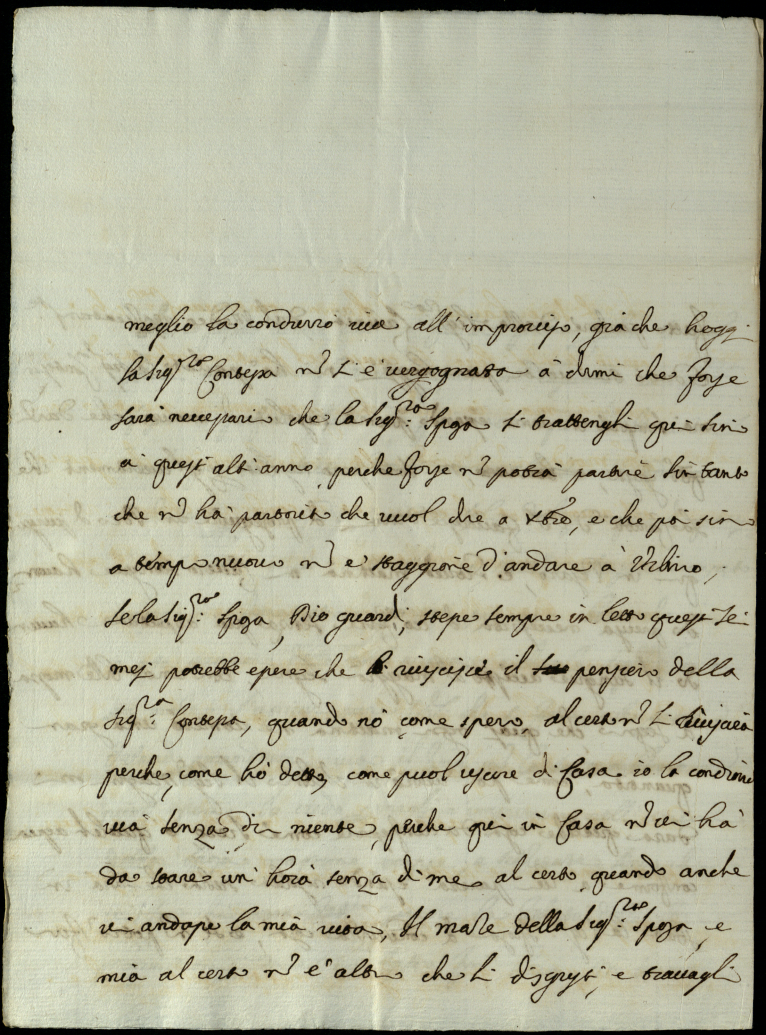 meglio la condurrò via all'improviso, già che hoggi
la Sig.ra Contessa nò si è vergognata à dirmi che forse
sarà necessario che la Sig.ra Sposa si trattenghi qui sin
a quest'altr'anno, perche forse nò potrà partire sin tanto
che nò hà partorito che vuol dire a Xbre, e che poi sino
a tempo nuovo nò è staggione d'andare à Urbino,
se la Sig.ra Sposa, Dio guardi, stesse sempre in letto questi sei
mesi potrebbe essere che li riuscisse il pensiero della
Sig.ra Contessa, quando nò come spero, al certo nò li riuscirà
perche, come hò detto, come puol uscire di Casa io la condurrò
via senza dir niente, perche qui in Casa nò vi hà
da stare un'hora senza di me al certo quando anche
vi andasse la mia vita, Il male della Sig.ra Sposa, e
mio al certo nò è altro che li disgusti, e travagli